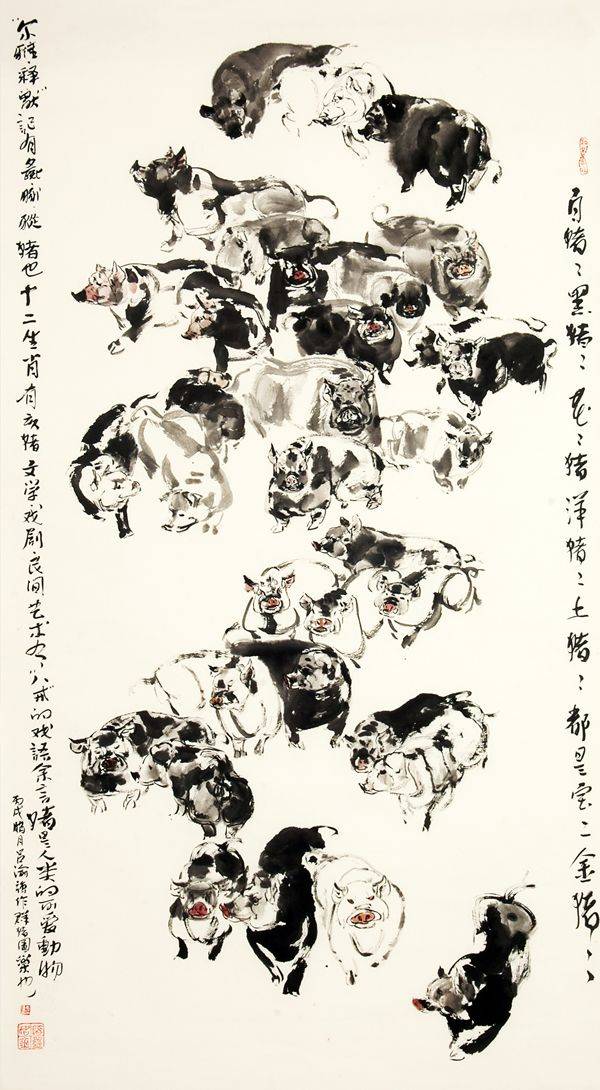 白猪〻黑猪〻花〻猪洋猪〻土猪〻都是宝〻金猪〻
尔雅释獸记有彘豚豵猪也十二生肖有亥猪文学戏剧民间艺术有八戒的戏語余言猪是人类的可爱動物
丙戌腊月作群猪图